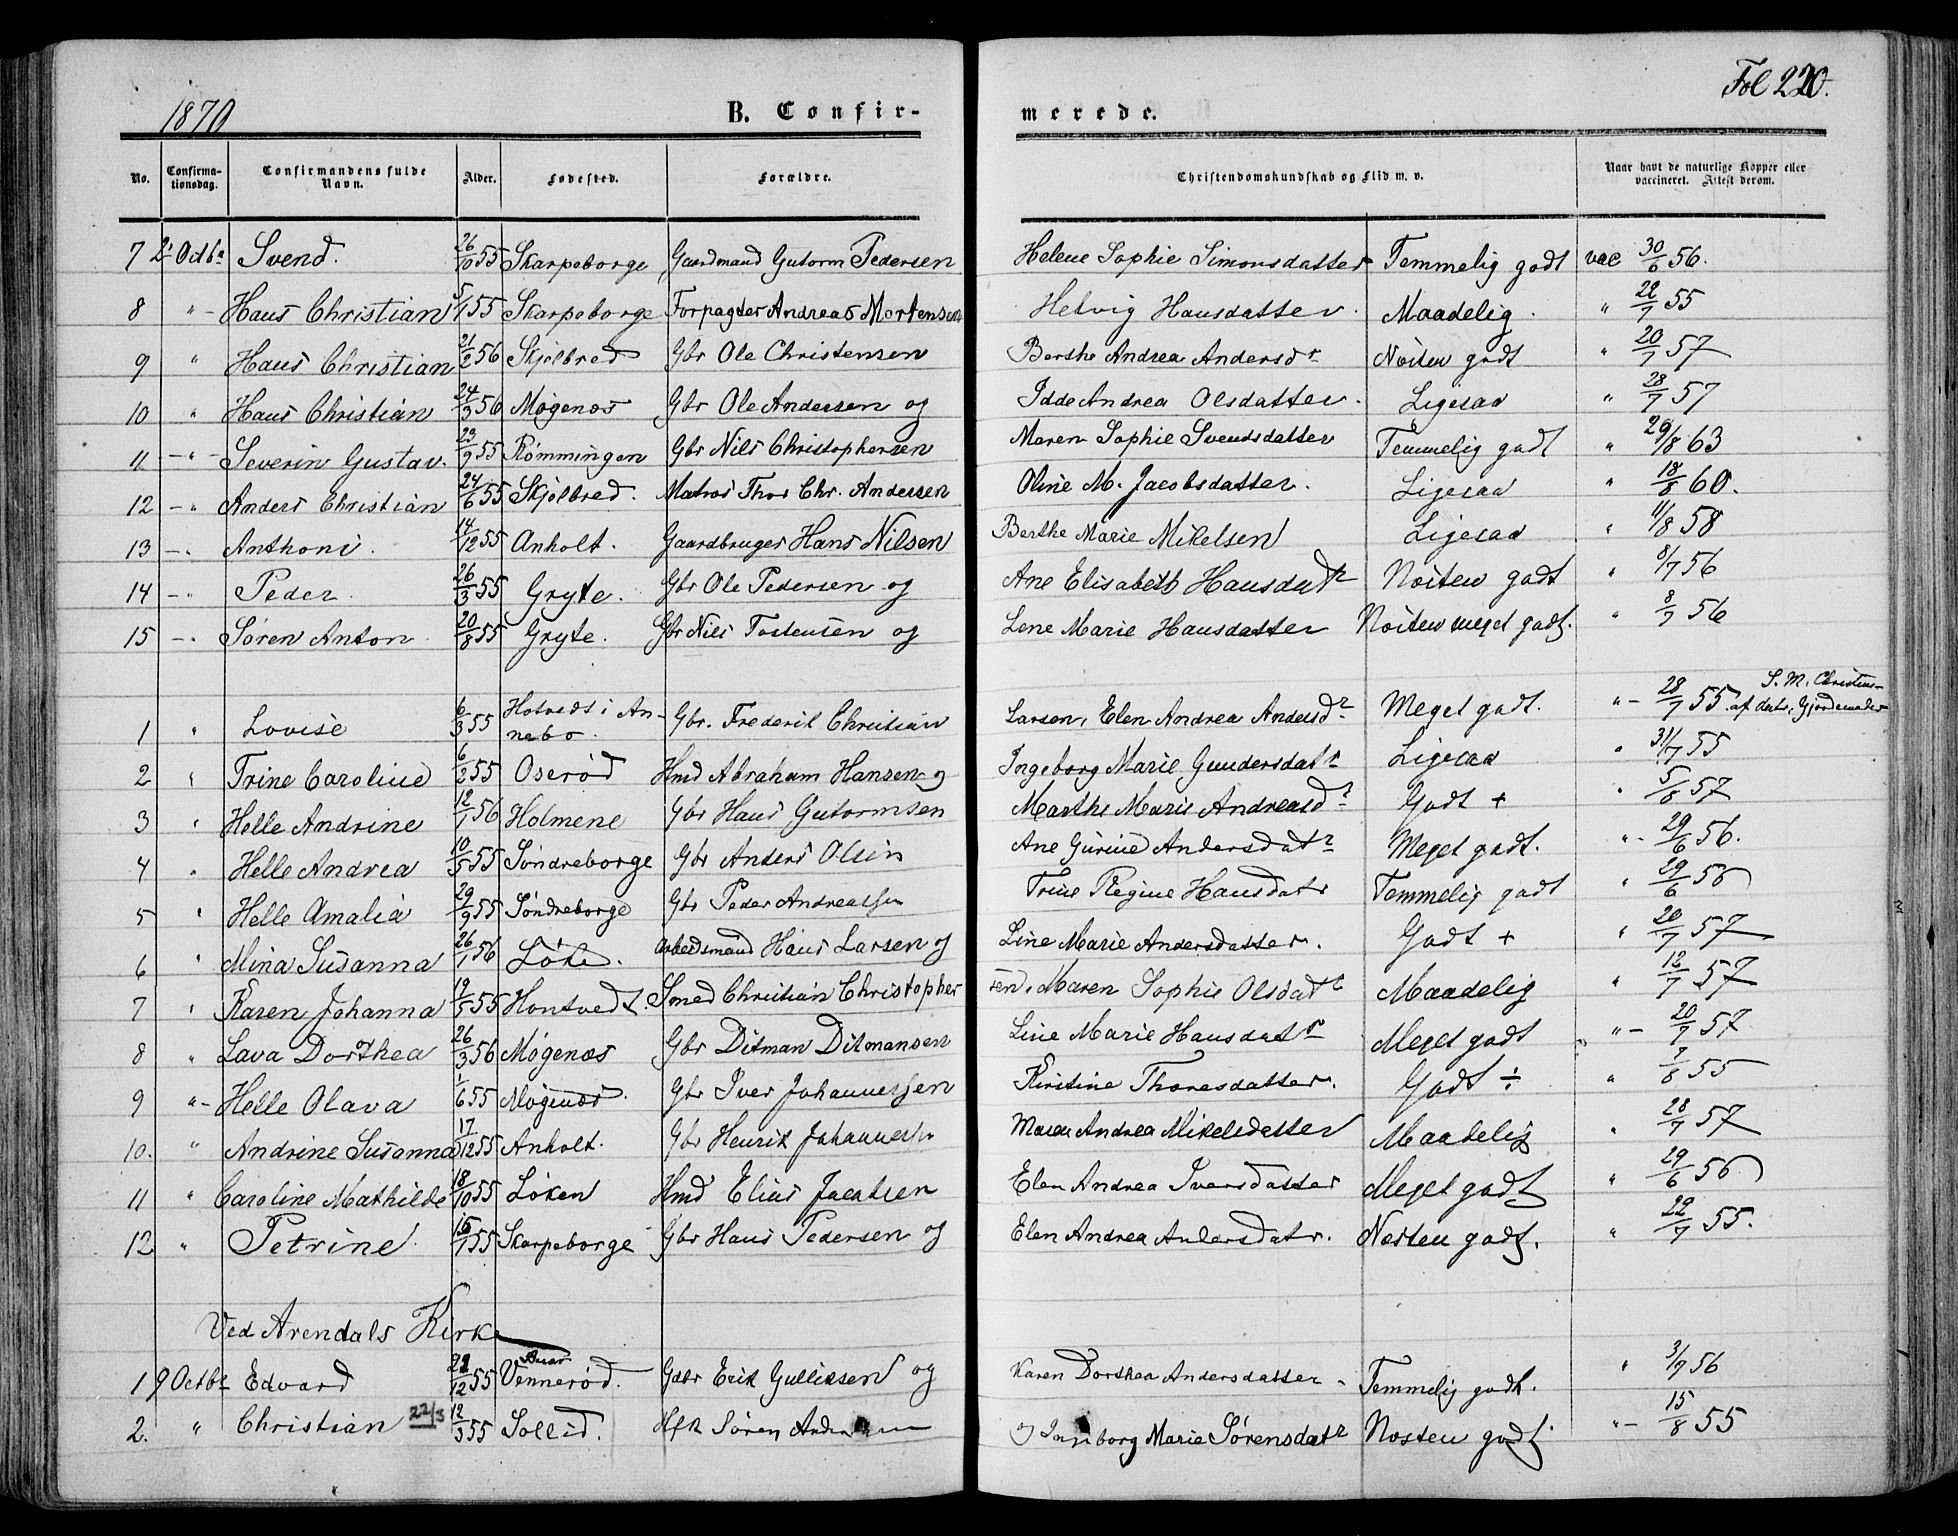 1870 B. Confirmerede. Fol 220.
No. Confirmationsdag. Confirmandens fulde Navn. Alder. Fødested. Forældre. Christendomskundskab og Flid m. v. Naar havt de naturlige Kopper eller vaccineret. Attest derom.
7 2 Octbr Svend. 26/10 55 Skarpeborge Gaardmand Gutorm Pedersen Helene Sophie Simonsdatter Temmelig godt vac 30/6 56.
8 " - Hans Christian 5/1 55 Skarpeborge Forpagter Andreas Mortensen Helvig Hansdatter. Maadelig. " 22/7 55
9 " Hans Christian 21/2 56 Skjelbred Gbr Ole Christensen Berthe Andrea Andersdr Næsten godt " 20/7 57
10 " Hans Christian 24/3 56 Møgenæs Gbr Ole Andersen og Idde Andrea Olsdatter. Ligesaa " 28/7 57
11 - " - Severin Gustav. 23/9 55 Rømmingen Gbr Nils Christophersen Maren Sophie Svendsdatter Temmelig godt " 29/8 63
12 - " Anders Christian 24/6 55 Skjelbred. Matros Thor Chr. Andersen Oline M. Jacobsdatter. Ligesaa " 18/8 60.
13 - " Anthoni. 14/12 55 Anholt. Gaardbruger Hans Nilsen Berthe Marie Mikelsen Ligesaa " 11/8 58
14 - " Peder. 26/3 55 Gryte. Gbr Ole Pedersen og Ane Elisabeth Hansdatr Næsten godt " 8/7 56
15 - " Søren Anton. 20/8 55 Gryte. Gbr Nils Tostensen og Lene Marie Hansdatter Næsten meget godt. " 8/7 56
1 Lovise 6/3 55 Holtvedt i Annebo. Gbr. Frederik Christian Larsen, Elen Andrea Andersdr Meget godt. " - 28/7 55 S. M. Christens- af dertr, Gjordemoder
2 " Trine Caroline 6/2 55 Oserød Hmd Abraham Hansen og Ingeborg Marie Gundersdatr Ligesaa " 31/7 55
3 " Helle Andrine 12/1 56 Holmene Gbr Hans Gutormsen Marthe Marie Andreasdr Godt + " 5/8 57
4 " Helle Andrea 10/5 55 Søndreborge Gbr Anders Olsen Ane Gurine Andersdatr Meget godt. " - 29/6 56.
5 " Helle Amalia 29/9 55 Søndreborge Gbr Peder Andreassen Trine Regine Hansdatr Temmelig godt " 29/6 56
6 " Mina Susanna 26/1 56 Løke. Arbeidsmand Hans Larsen og Line Marie Andersdatter. Godt + " 20/7 57
7 " Karen Johanna 19/5 55 Hontvedt. Smed Christian Christophersen, Maren Sophie Olsdatr Maadelig " 12/7 57
8 " Lava Dorthea 26/3 56 Møgenæs Gbr Ditman Ditmansen Line Marie Hansdatr Meget godt " - 20/7 57
9 " - Helle Olava 1/6 55 Møgenæs. Gbr Iver Johannessen Kirstine Thoresdatter. Godt ÷ " 7/8 55
10. " Andrine Susanna 17/12 55 Anholt. Gbr Henrik Johannessen Maren Andrea Mikelsdatter Maadelig " 28/7 57
11 " Caroline Mathilde 18/10 55 Løken Hmd Elias Jacobsen Elen Andrea Iversdatter Meget godt " 29/6 56
12 " Petrine. 15/1 55 Skarpeborge Gbr Hans Pedersen og Elen Andrea Andersdatr. Næsten godt. " 22/7 55.
Ved Arendals Kirke
1 9 Octbr Edvard 22/12 55 Vennerød. Gdbr Erik Gulliksen og Karen Dorthea Andersdatter - Temmelig godt. " 3/7 56
2. " Christian 22/3 12/3 55 Sollid. Hfk Søren og Marie Sørensdatr Næsten godt. " - 15/8 55